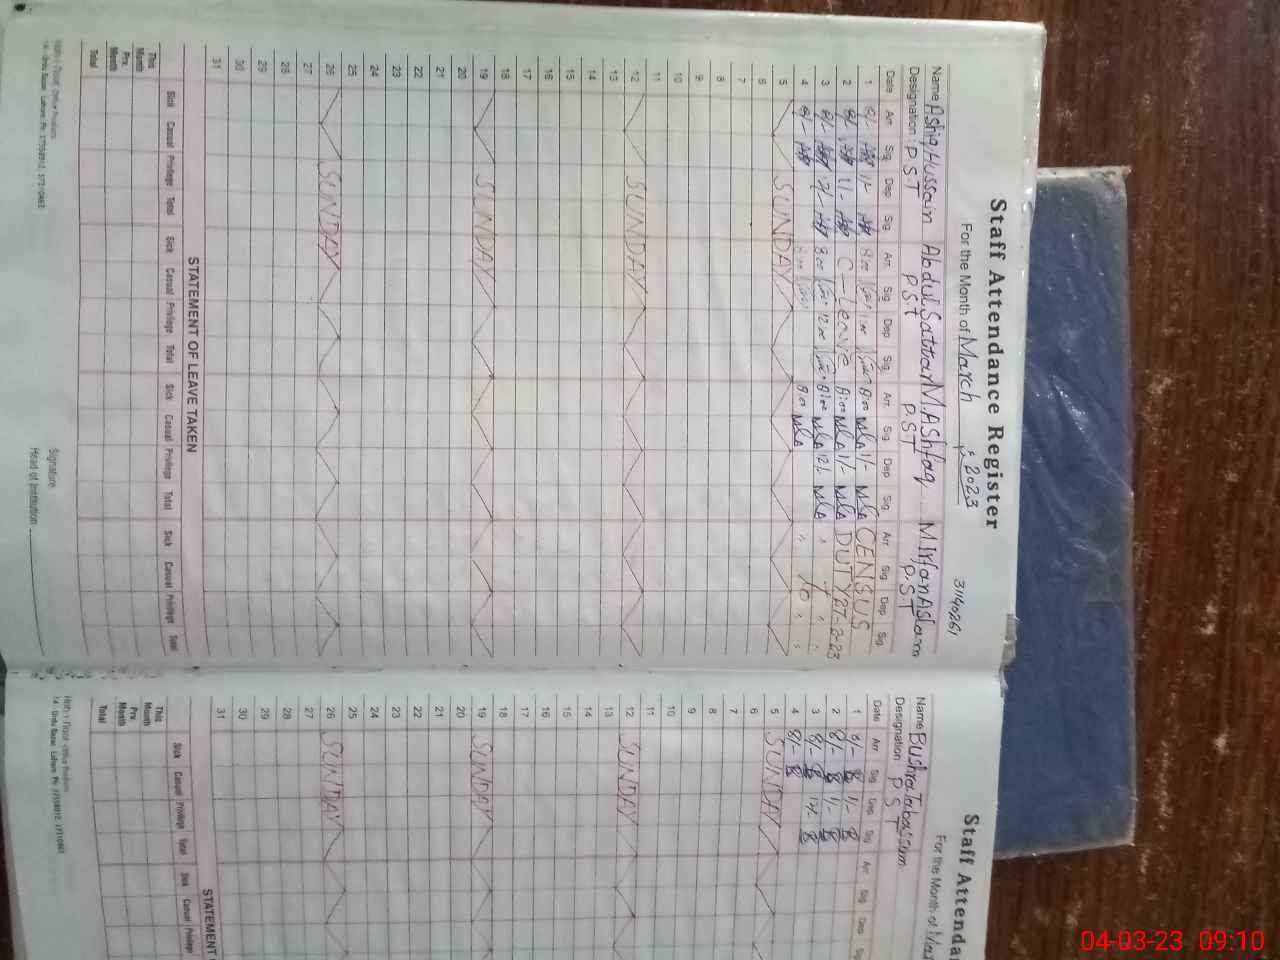 Staff Attendance Register
For the Month of March, 2023
31140261
Name Ashiq Hussain Abdul Sattar M. Ashfaq M. Irfan Aslam
Designation P S T P S T P. S T P. S. T
Date Arr. Sig. Dep Sig. Arr. Sig. Dep Sig. Arr. Sig. Dep Sig. Arr. Sig. Dep Sig.
1 8/- 11/- 8:00 11:00 8:00 11/- CENSUS
2 8/- 11/- C-Leave 8:00 11/- DUTY 27-2-23
3 8/- 12/- 8:00 12:00 8:00 12/-
4 8/- 8:00 8:00 To
5 SUNDAY
6
7
8
9
10
11
12 SUNDAY
13
14
15
16
17
18
19 SUNDAY
20
21
22
23
24
25
26 SUNDAY
27
28
29
30
31
STATEMENT OF LEAVE TAKEN
Sick Casual Privilege Total Sick Casual Privilege Total Sick Casual Privilege Total Sick Casual Privilege Total
This Month
Prv. Month
Total
Signature
Head of Institution
14 - Urdu Bazar Lahore.
Staff Attenda
For the Month of Ma
Name Bushra Tabassum
Designation P S T
Date Arr. Sig. Dep Sig. Arr. Sig. Dep Sig.
1 8/- 11/-
2 8/- 11/-
3 8/- 12/-
4 8/-
5 SUNDAY
6
7
8
9
10
11
12 SUNDAY
13
14
15
16
17
18
19 SUNDAY
20
21
22
23
24
25
26 SUNDAY
27
28
29
30
31
STATEMENT
Sick Casual Privilege Total Sick Casual Privilege
This Month
Prv. Month
Total
14 - Urdu Bazar Lahore.
04-03-23 09:10